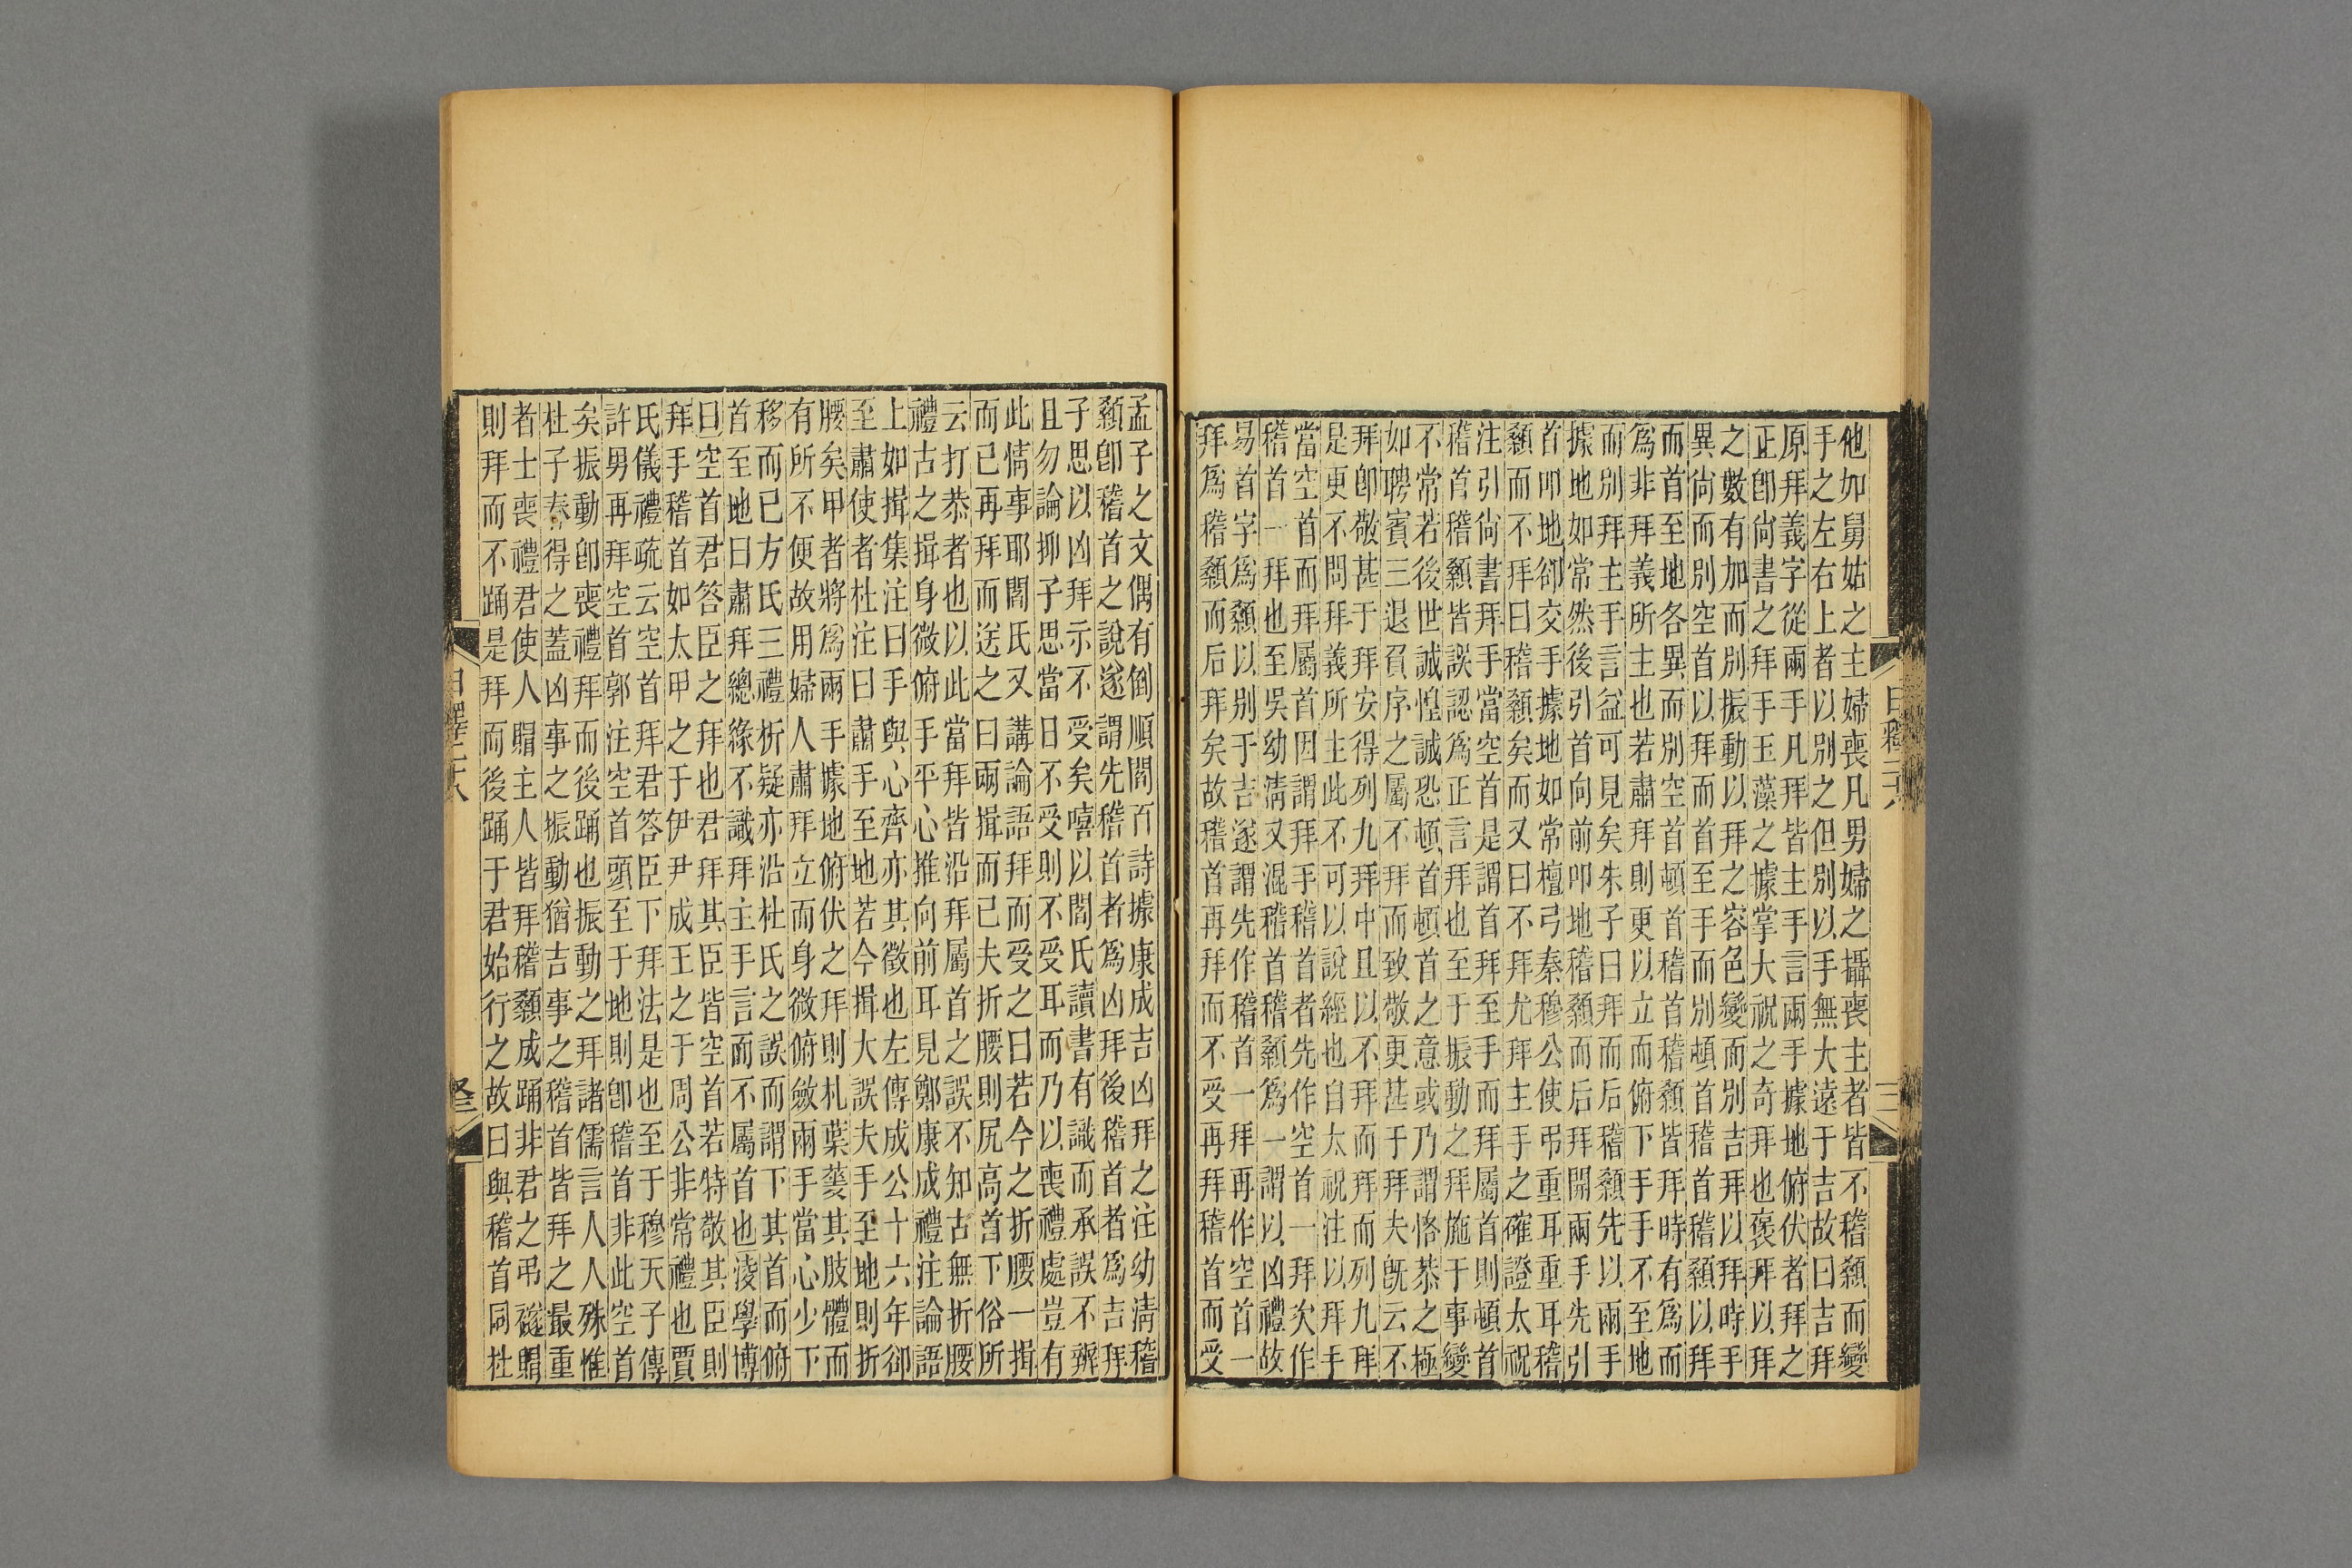 他如舅姑之主婦喪凡男婦之攝喪主者皆不稽顙而變
手之左右上者以別之但別以手無大遠于吉故曰吉拜
原拜義字從兩手凡拜皆主手言兩手據地俯伏者拜之
正卽尙書之拜手玉藻之據掌大祝之奇拜也褒拜以拜
之數有加而別振動以拜之容色變而別吉拜以拜時手
異尙而別空首以拜而首至手而別頓首稽首稽顙以拜
而首至地各異而別空首頓首稽首稽顙皆拜時有爲而
爲非拜義所主也若肅拜則更以立而俯下手手不至地
而別拜主手言益可見矣朱子曰拜而后稽顙先以兩手
據地如常然後引首向前叩地稽顙而后拜開兩手先引
首叩地卻交手據地如常檀弓秦穆公使弔重耳重耳稽
顙而不拜曰稽顙矣而又曰不拜尤拜主手之確證太祝
注引尙書拜手當空首是謂首拜至手而拜屬首則頓首
稽首稽顙皆誤認爲正言拜也至于振動之拜施于事變
不常若後世誠惶誠恐頓首頓首之意或乃謂恪恭之極
如聘賓三退負序之屬不拜而致敬更甚于拜夫旣云不
拜卽敬甚于拜安得列九拜中且以不拜而拜而列九拜
是更不問拜義所主此不可以說經也自太祝注以拜手
當空首而拜屬首因謂拜手稽首者先作空首一拜次作
稽首一拜也至吳幼淸又混稽首稽顙爲一謂以凶禮故
易首字爲顙以別于吉遂謂先作稽首一拜再作空首一
拜爲稽顙而后拜矣故稽首再拜而不受再拜稽首而受
孟子之文偶有倒順閻百詩據康成吉凶拜之注幼淸稽
顙卽稽首之說遂謂先稽首者爲凶拜後稽首者爲吉拜
子思以凶拜示不受矣嘻以閻氏讀書有識而承誤不辨
且勿論抑子思當日不受則不受耳而乃以喪禮處豈有
此情事耶閻氏又講論語拜而受之曰若今之折腰一揖
而已再拜而送之曰兩揖而已夫折腰則尻高首下俗所
云打恭者也以此當拜皆沿拜屬首之誤不知古無折腰
禮古之揖身微俯手平心推向前耳見鄭康成禮注論語
上如揖集注曰手與心齊亦其徵也左傳成公十六年卻
至肅使者杜注曰肅手至地若今揖大誤夫手至地則折
腰矣甲者將爲兩手據地俯伏之拜則札葉蔆其肢體而
有所不便故用婦人肅拜立而身微俯斂兩手當心少下
移而已方氏三禮析疑亦沿杜氏之誤而謂下其首而俯
首至地曰肅拜總緣不識拜主手言而不屬首也淩學博
曰空首君答臣之拜也君拜其臣皆空首若特敬其臣則
拜手稽首如太甲之于伊尹成王之于周公非常禮也賈
氏儀禮疏云空首拜君答臣下拜法是也至于穆天子傳
許男再拜空首郭注空首頭至于地則卽稽首非此空首
矣振動卽喪禮拜而後踊也振動之拜諸儒言人人殊惟
杜子春得之蓋凶事之振動猶吉事之稽首皆拜之最重
者士喪禮君使人賵主人皆拜稽顙成踊非君之弔襚賵
則拜而不踊是拜而後踊于君始行之故曰與稽首同杜